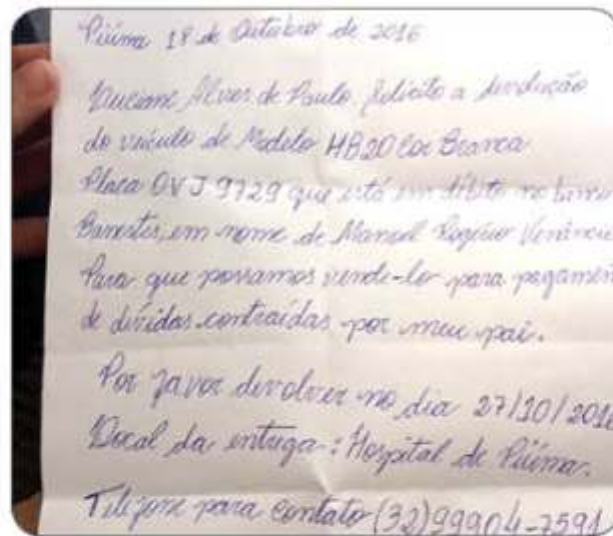 Piúma 18 de Outubro de 2016
Luciane Alves de Paulo, solicito a devolução
do veículo de Modelo HB20 Cor Branca
Placa OVJ 9729 que está em débito no banco
Banestes, em nome de Manoel Rogério Venâncio
Para que possamos vende-lo para pagamen
de dívidas contraídas por meu pai.
Por favor devolver no dia 27/10/2016
Local da entrega: Hospital de Piúma.
Telefone para contato (32)99904-7591